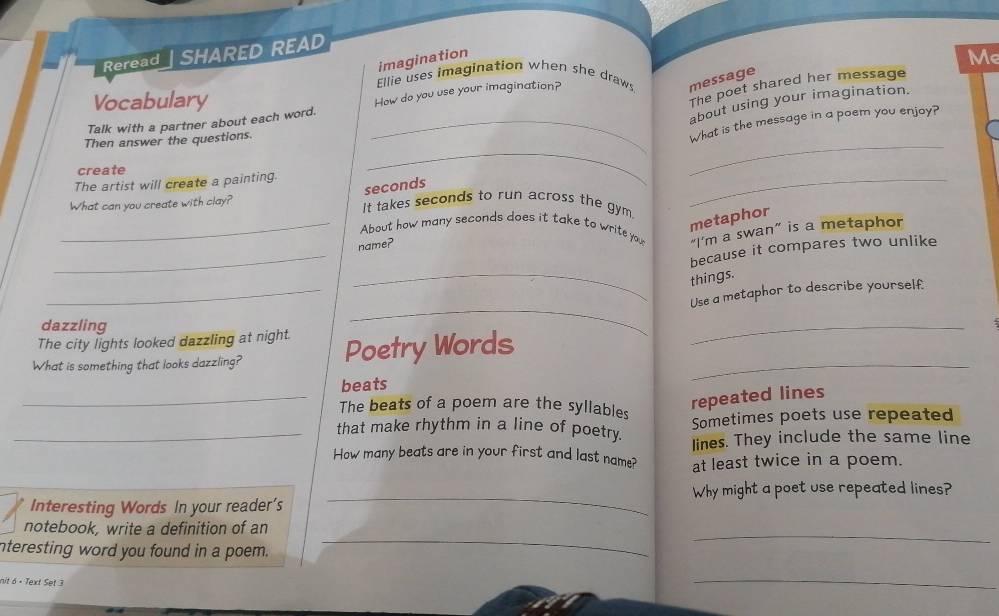 Reread SHARED READ
Vocabulary
Talk with a partner about each word.
Then answer the questions.
create
The artist will create a painting.
What can you create with clay?
dazzling
The city lights looked dazzling at night.
What is something that looks dazzling?
Interesting Words In your reader's
notebook, write a definition of an
nteresting word you found in a poem.
nit 6 • Text Set 3
imagination
Ellie uses imagination when she draws.
How do you use your imagination?
seconds
It takes seconds to run across the gym.
About how many seconds does it take to write your
name?
Poetry Words
beats
The beats of a poem are the syllables
that make rhythm in a line of poetry.
How many beats are in your first and last name?
message
The poet shared her message
about using your imagination.
What is the message in a poem you enjoy?
metaphor
"I'm a swan" is a metaphor
because it compares two unlike
things.
Use a metaphor to describe yourself.
repeated lines
Sometimes poets use repeated
lines. They include the same line
at least twice in a poem.
Why might a poet use repeated lines?
Me